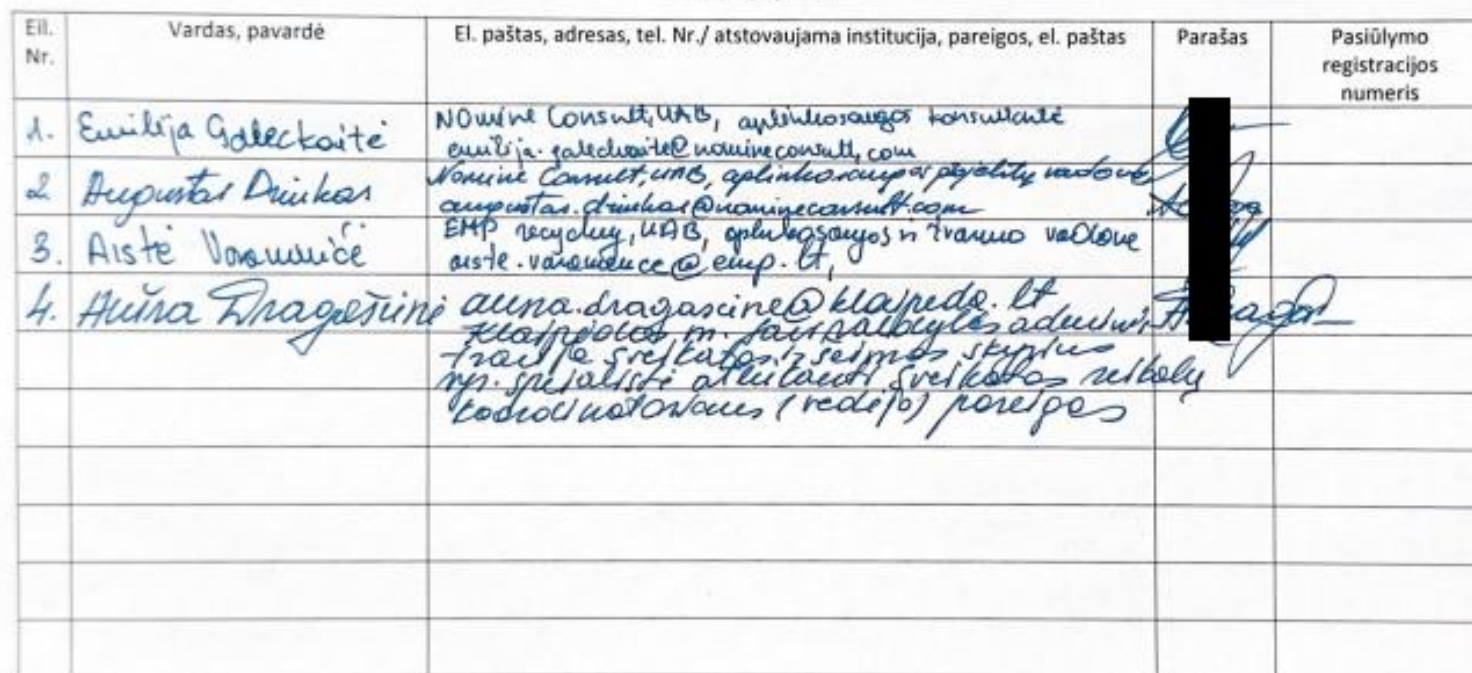 Eil. Nr. Vardas, pavardė El. paštas, adresas, tel. Nr./ atstovaujama institucija, pareigos, el. paštas Parašas Pasiūlymo registracijos numeris
1. Emilija Galeckaitė NOmine Consult, UAB, aplinkosaugos konsultantė
emilija.galeckaite@nomineconsult,com
2. Augustas Driukas Nomine Consult, UAB, aplinkosaugos projektų vadovas
augustas.driukas@nomineconsult.com
3. Aistė EMP recycling, UAB, aplinkosaugos ir tvarumo vadovė
@emp.lt,
4. Aušra @klaipeda.lt
Klaipėdos m. savivaldybės adminis
tracija sveikatos ir šeimos skyrius
vyr. specialistė atliekanti sveikatos reikalų
koordinatoriaus (vedėjo) pareigas